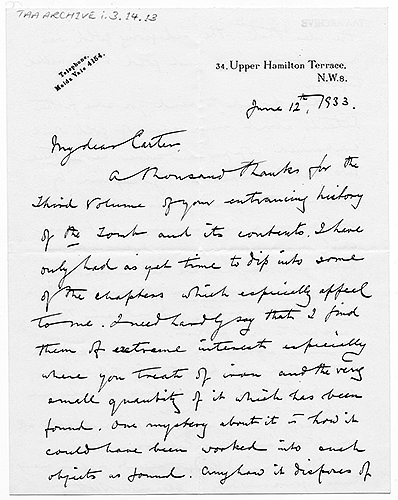 TAA ARCHIVE i.3.14.13
Telephone,
Maida Vale 4154.
34, Upper Hamilton Terrace,
N.W.8.
June 12th, 1933.
My dear Carter,
A thousand thanks for the
Third Volume of your entrancing history
of the Tomb and its contents. I have
only had as yet time to dip into some
of the chapters which especially appeal
to me. I need hardly say that I find
them of extreme interest especially
where you treat of iron and the very
small quantity of it which has been
found. One mystery about it is how it
could have been worked into such
objects as found. Anyhow it disposes of